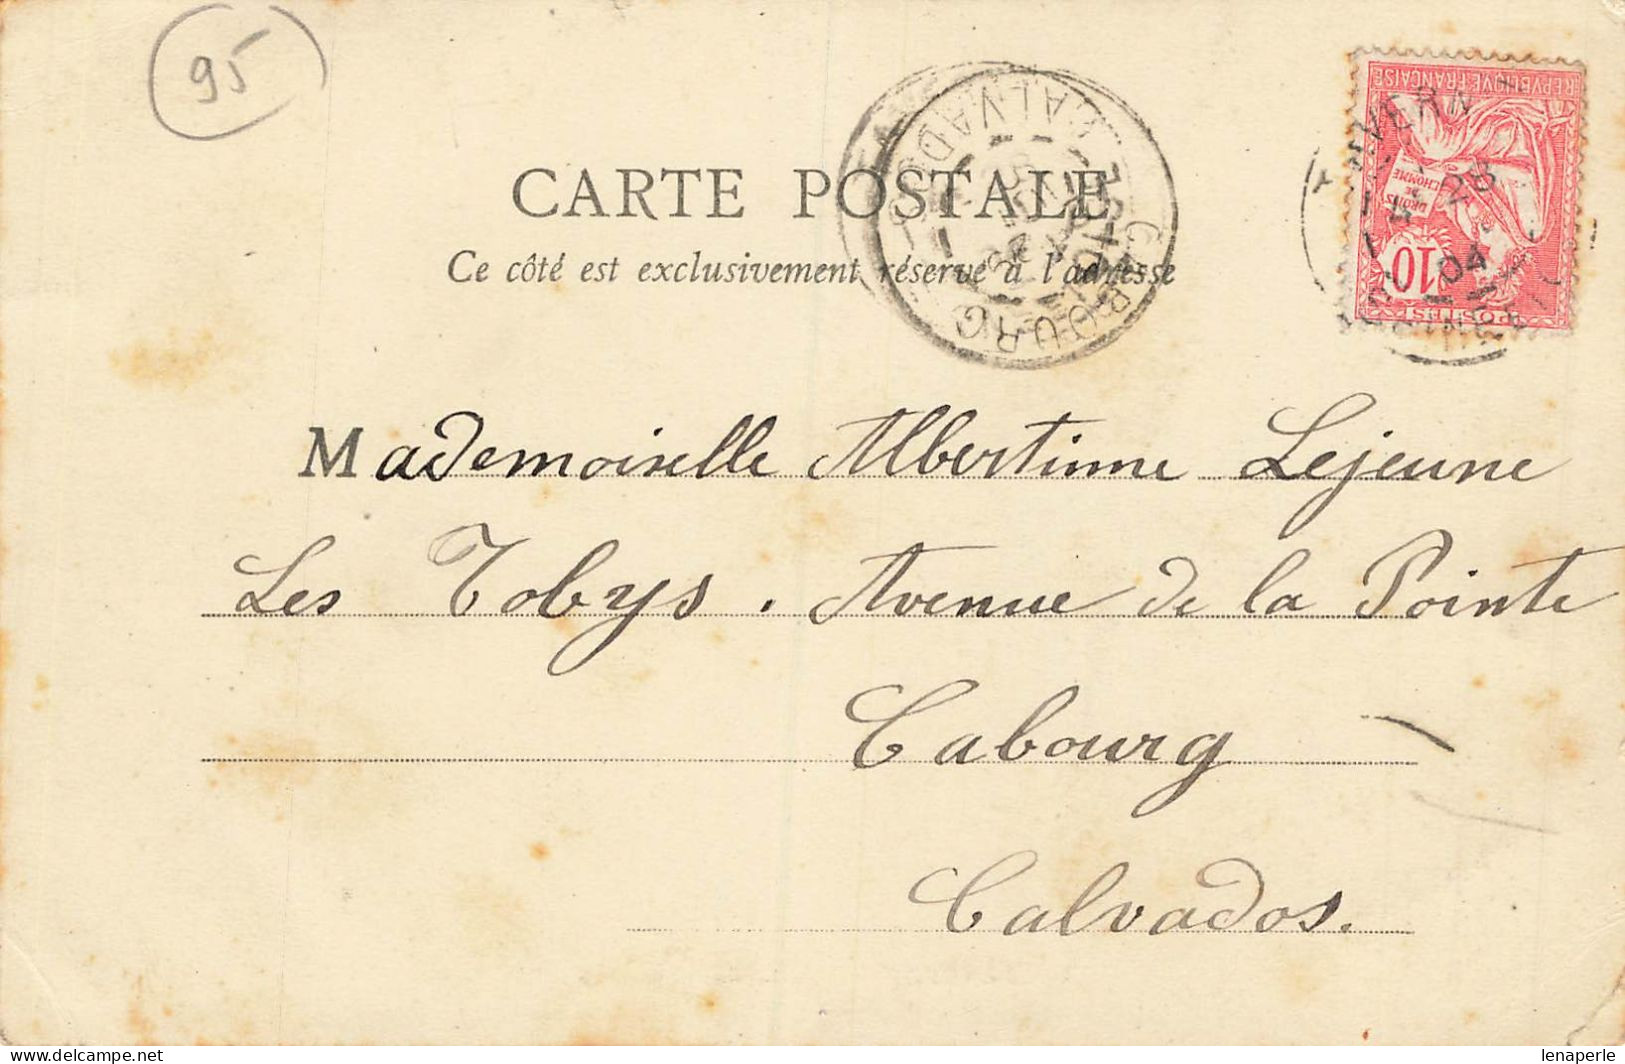 95
CARTE POSTALE
Ce côté est exclusivement réservé à l'adresse
REPVBLIQVE FRANÇAISE
DROITS
DE
L'HOMME
10
POSTES
28
04
CABOURG
CALVADOS
Mademoiselle Albertinne Lejeune
Les Tobys. Avenue de la Pointe
Cabourg
Calvados.
delcampe.net
lenaperle